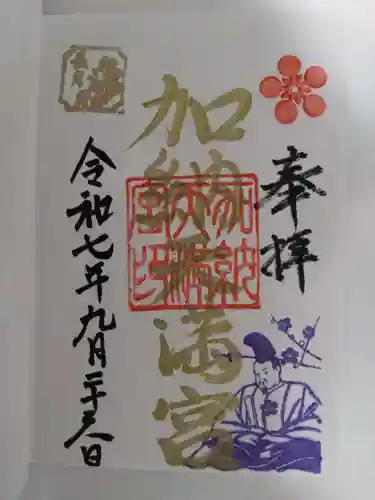 奉拝
加納天満宮
加納天満宮印
令和七年九月二十五日